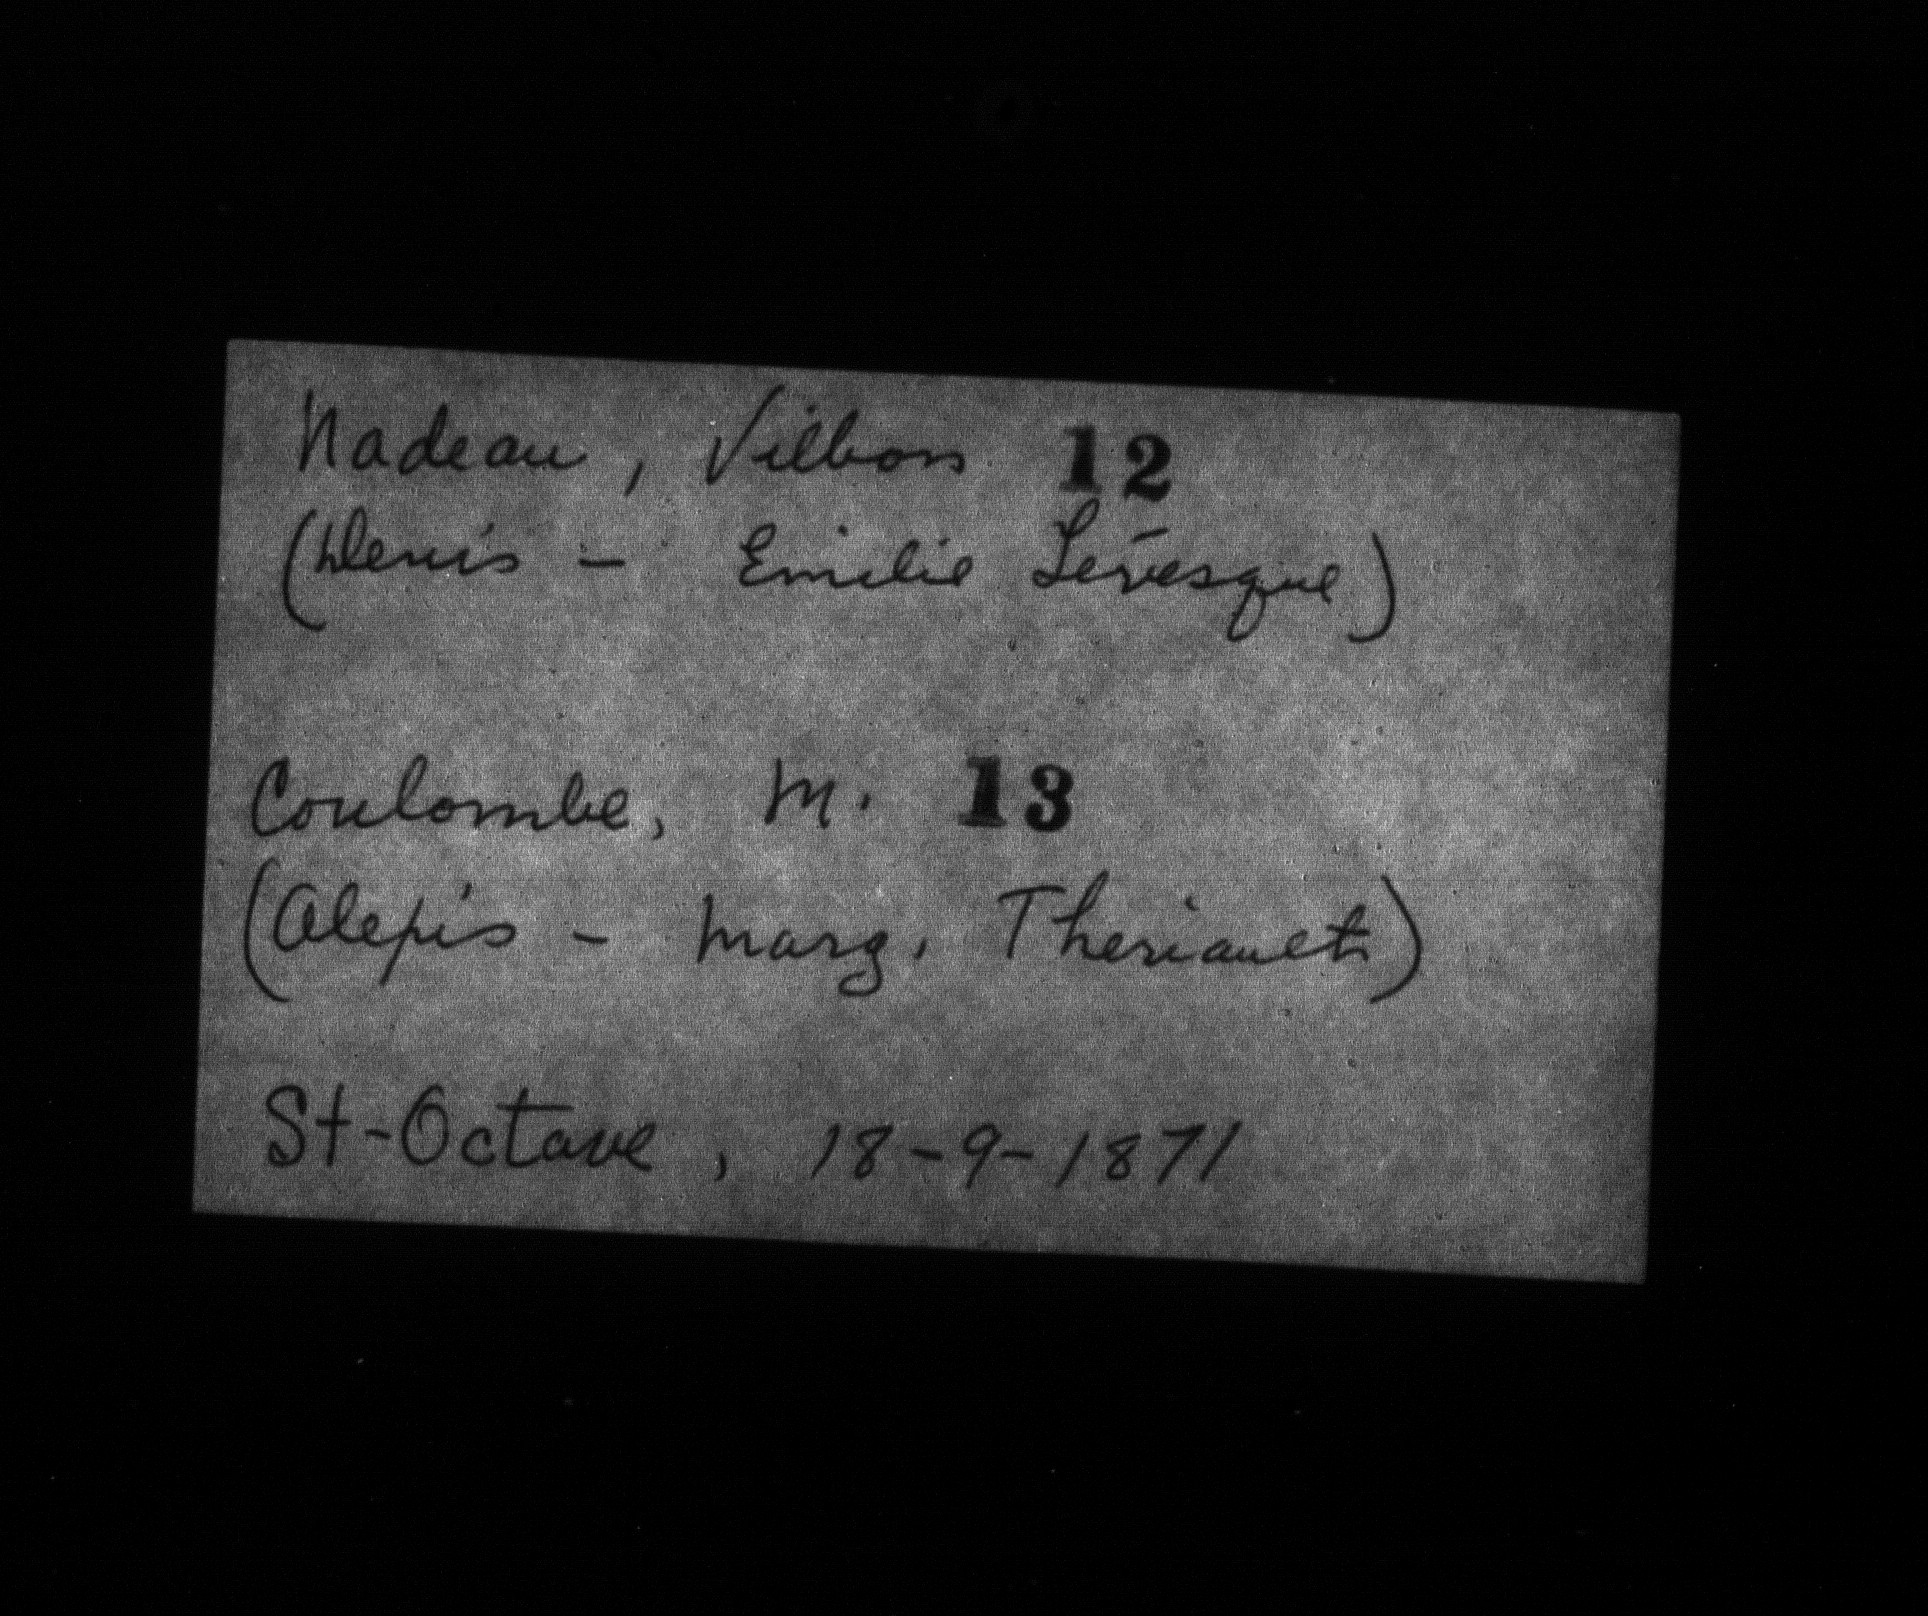 Nadeau, Vilbon 12
(Denis - Emilie Lévesque)
Coulombe, M. 13
(Alexis - Marg. Theriault)
St-Octave, 18-9-1871